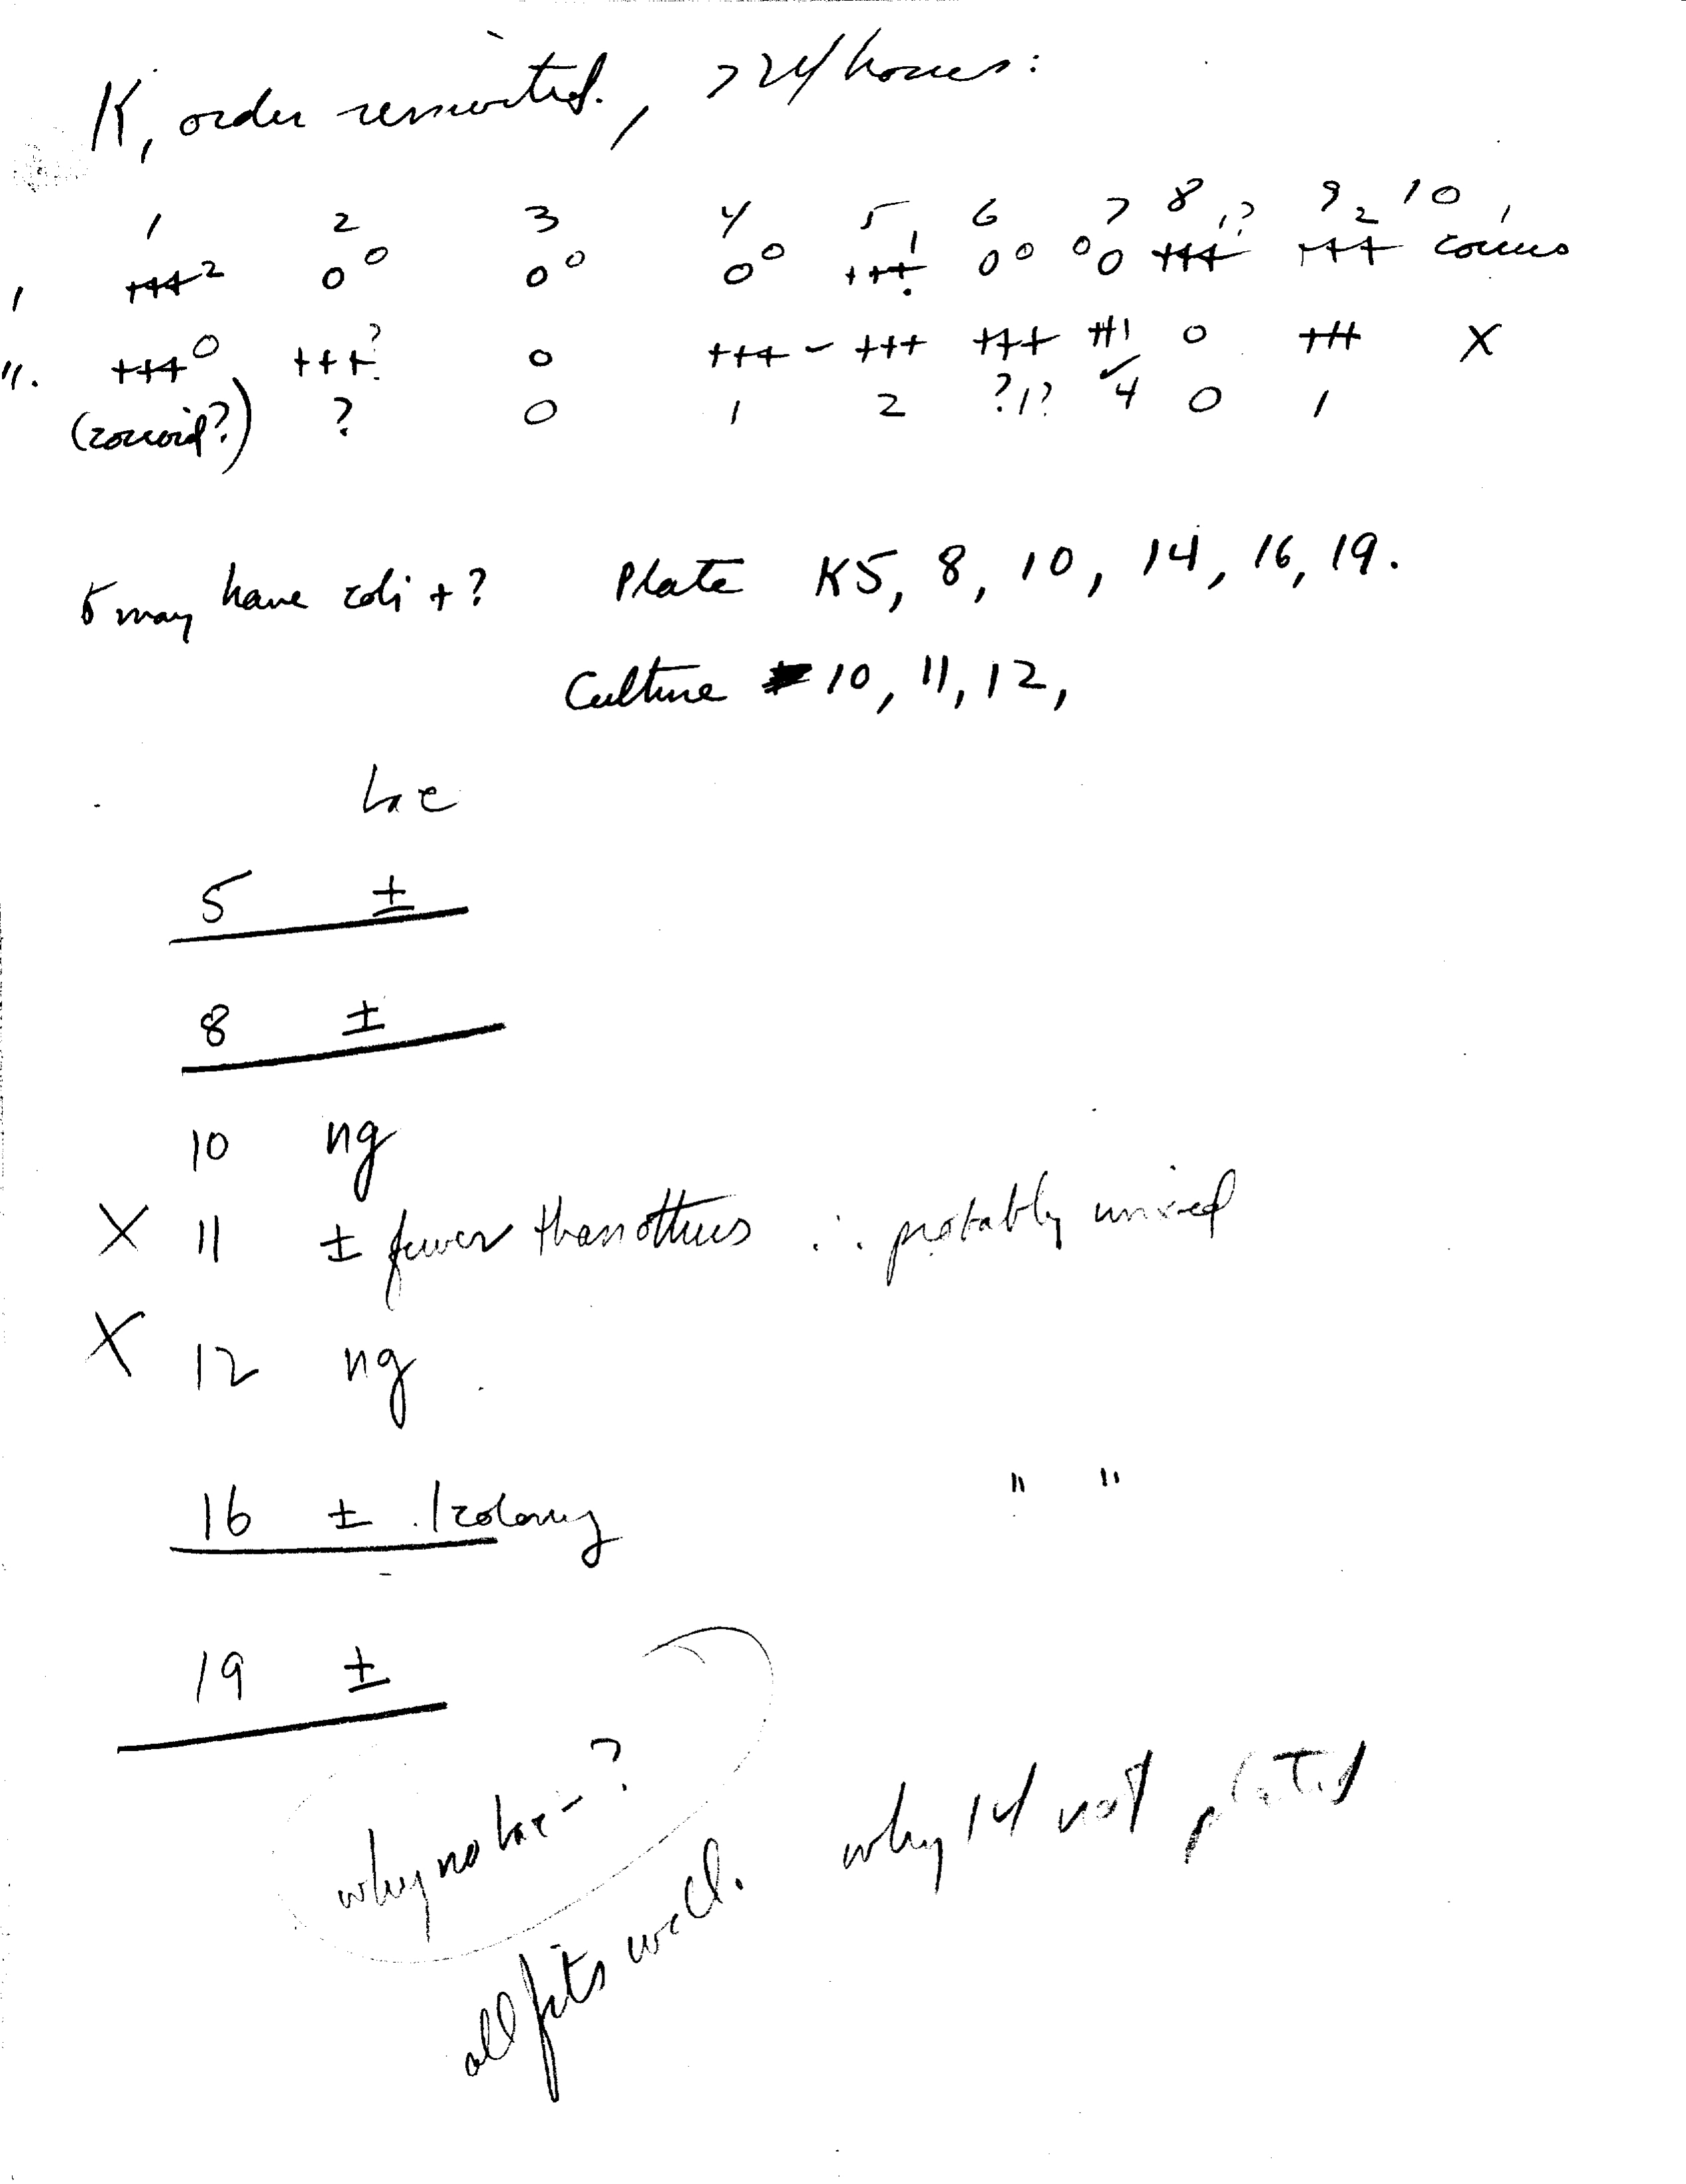 K, order resorted., >24 hours:
1 2 3 4 5 6 7 8 9 10
1 +++ 2 0 0 0 0 0 0 +++ 1 0 0 0 0 +++ 1? +++ 2 coccus 1
11. +++ 0 +++? 0 +++ - +++ +++ +++1 0 +++ X
(coccoid?) ? 0 1 2 ?1? 4 0 1
5 may have coli +? Plate K5, 8, 10, 14, 16, 19.
Culture 10, 11, 12,
Lac
5 ±
8 ±
10 ng
X 11 ± fewer than others ∴ probably mixed
X 12 ng
16 ± 1 colony " "
19 ±
why no Lac - ?
all fits well. why 14 not plated